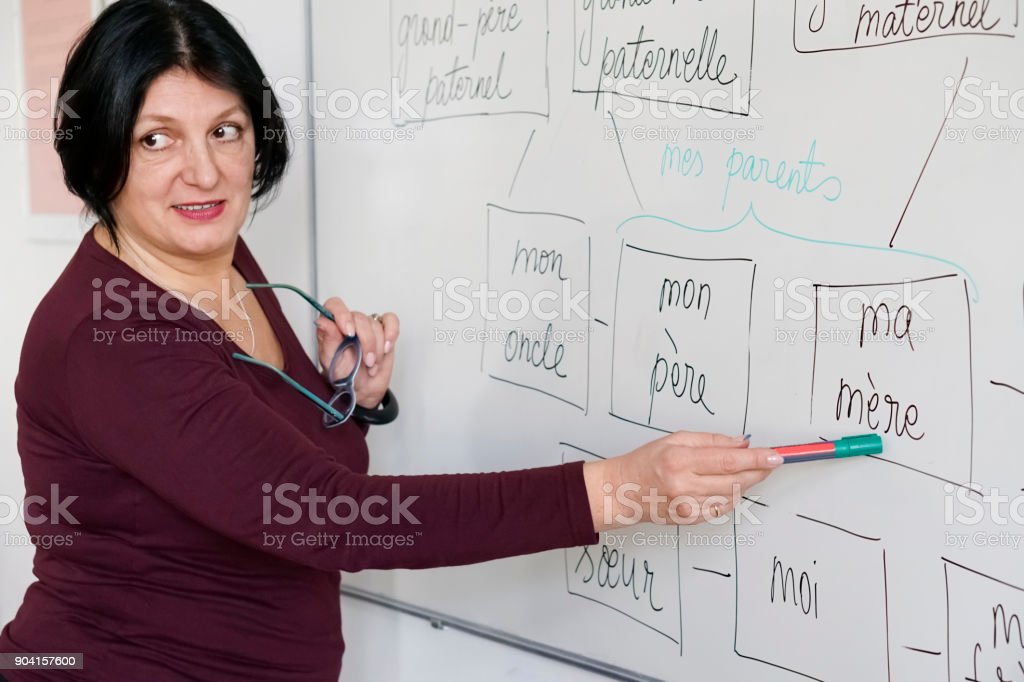 grand-père
paternel
paternelle
maternel
mes parents
mon
oncle
mon
père
ma
mère
sœur
moi
iStock
by Getty Images™
904157600